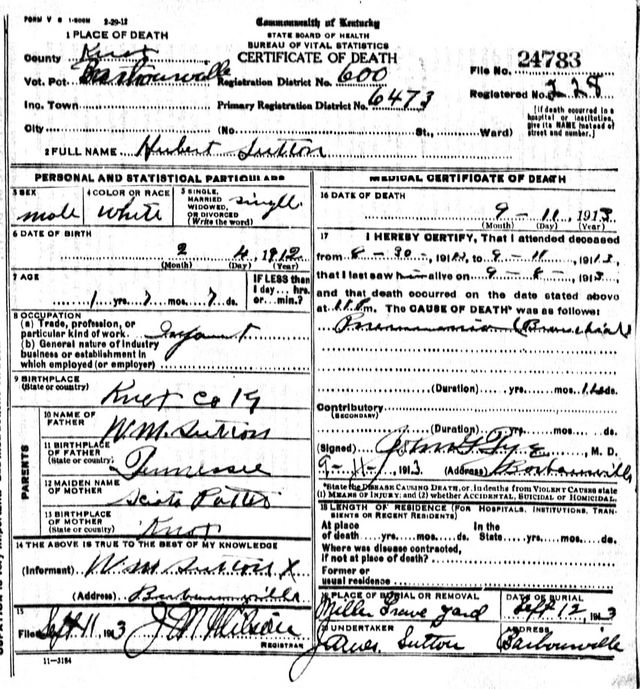 FORM V S 1-500M 2-29-12
Commonwealth of Kentucky
STATE BOARD OF HEALTH
BUREAU OF VITAL STATISTICS
CERTIFICATE OF DEATH
1 PLACE OF DEATH
County Knox
Vot. Pct. Barbourville Registration District No. 600
File No. 24783
Registered No. 228
Inc. Town Primary Registration District No. 6473
[If death occurred in a
hospital or institution,
give its NAME instead of
street and number.]
City (No. St., Ward)
2 FULL NAME Hubert Sutton
PERSONAL AND STATISTICAL PARTICULARS
3 SEX
male
4 COLOR OR RACE
White
5 SINGLE,
MARRIED
WIDOWED,
OR DIVORCED
(Write the word)
single
6 DATE OF BIRTH
2 4, 1912
(Month) (Day) (Year)
7 AGE
1 yrs. 7 mos. 7 ds.
IF LESS than
1 day... hrs.
or... min.?
8 OCCUPATION
(a) Trade, profession, or
particular kind of work Infant
(b) General nature of industry
business or establishment in
which employed (or employer)
9 BIRTHPLACE
(State or country)
Knox Co Ky
PARENTS
10 NAME OF
FATHER
W.M. Sutton
11 BIRTHPLACE
OF FATHER
(State or country)
Tennessee
12 MAIDEN NAME
OF MOTHER
13 BIRTHPLACE
OF MOTHER
(State or country)
Knox
14 THE ABOVE IS TRUE TO THE BEST OF MY KNOWLEDGE
(Informant) W.M. Sutton X
(Address) Barbourville
15
Filed Sept 11, 1913 J.M. Wilson
REGISTRAR
11-3184
MEDICAL CERTIFICATE OF DEATH
16 DATE OF DEATH
9 - 11, 1913
(Month) (Day) (Year)
17 I HEREBY CERTIFY, That I attended deceased
from 8-30-, 1913, to 9-11-, 1913,
that I last saw him alive on 9-8-, 1913
and that death occurred on the date stated above
at m. The CAUSE OF DEATH* was as follows:
Pneumonia (Bronchial)
(Duration) yrs. mos. ds.
Contributory
(SECONDARY)
(Duration) yrs. mos. ds.
(Signed) John G. Tye, M. D.
9-11-, 1913 (Address) Barbourville
*State the DISEASE CAUSING DEATH, or, in deaths from VIOLENT CAUSES state
(1) MEANS OF INJURY; and (2) whether ACCIDENTAL, SUICIDAL or HOMICIDAL.
18 LENGTH OF RESIDENCE (FOR HOSPITALS, INSTITUTIONS, TRAN-
SIENTS OR RECENT RESIDENTS)
At place In the
of death yrs. mos. ds. State yrs. mos. ds.
Where was disease contracted,
if not at place of death?
Former or
usual residence
19 PLACE OF BURIAL OR REMOVAL
Miller Grave Yard
DATE OF BURIAL
Sept 12, 1913
20 UNDERTAKER
James Sutton
ADDRESS
Barbourville